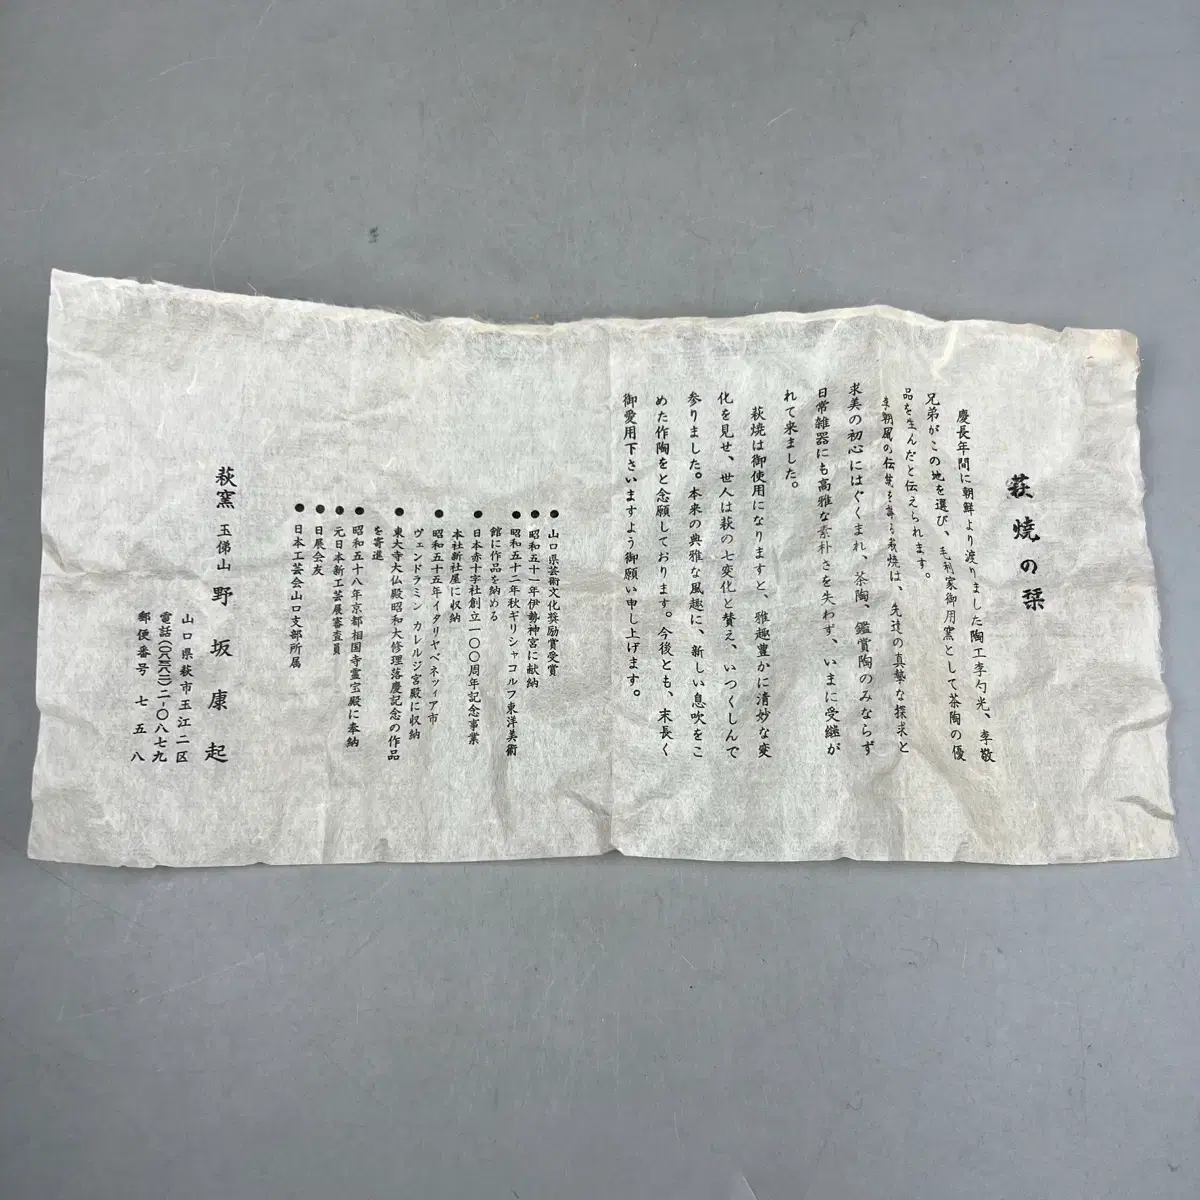 萩焼の栞
慶長年間に朝鮮より渡りました陶工李勺光、李敬
兄弟がこの地を選び、毛利家御用窯として茶陶の優
品を生んだと伝えられます。
李朝風の伝統を薫る萩焼は、先達の真摯な探求と
求美の初心にはぐくまれ、茶陶、鑑賞陶のみならず
日常雑器にも高雅な素朴さを失わず、いまに受継が
れて来ました。
萩焼は御使用になりますと、雅趣豊かに清妙な変
化を見せ、世人は萩の七変化と賛え、いつくしんで
参りました。本来の典雅な風趣に、新しい息吹をこ
めた作陶をと念願しております。今後とも、末長く
御愛用下さいますよう御願い申し上げます。
●山口県芸術文化奨励賞受賞
●昭和五十一年伊勢神宮に献納
●昭和五十二年秋ギリシャコルフ東洋美術
館に作品を納める
●日本赤十字社創立一〇〇周年記念事業
本社新社屋に収納
●昭和五十五年イタリヤベネツィア市
ヴェンドラミン カレルジ宮殿に収納
●東大寺大仏殿昭和大修理落慶記念の作品
を寄進
●昭和五十八年京都相国寺霊宝殿に奉納
●元日本新工芸展審査員
●日展会友
●日本工芸会山口支部所属
萩窯 玉佛山 野坂康起
山口県萩市玉江二区
電話(〇八三八二)二-〇八七九
郵便番号 七五八